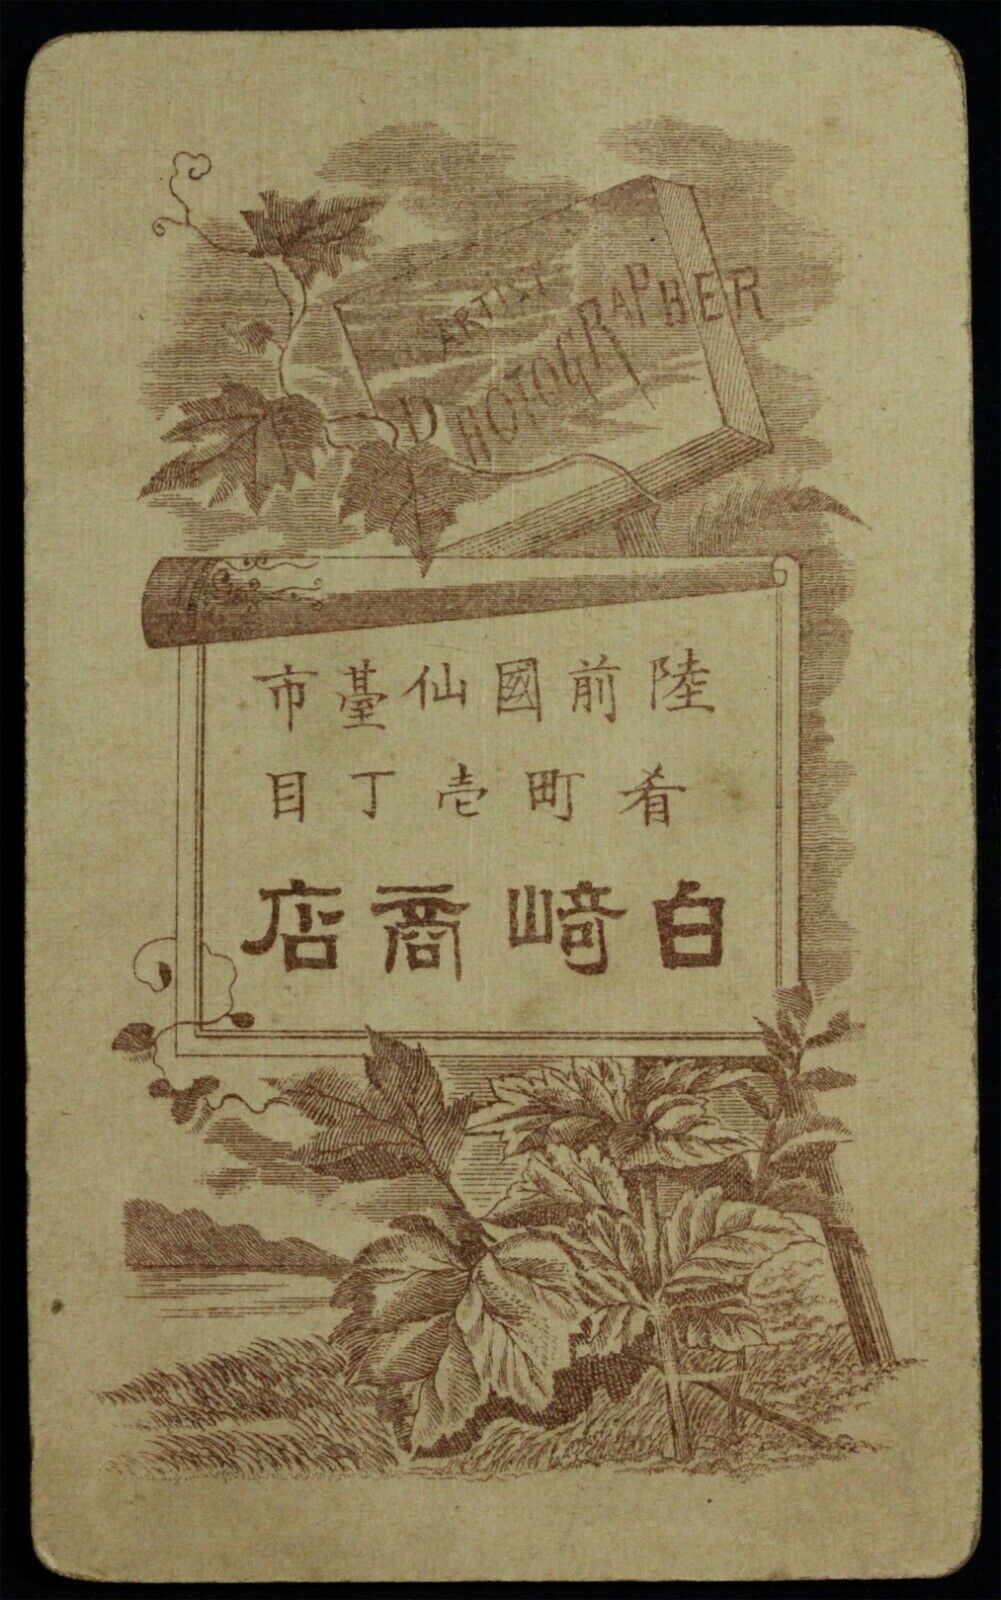 ARTIST
PHOTOGRAPHER
陸前國仙臺市
肴町壱丁目
白﨑商店